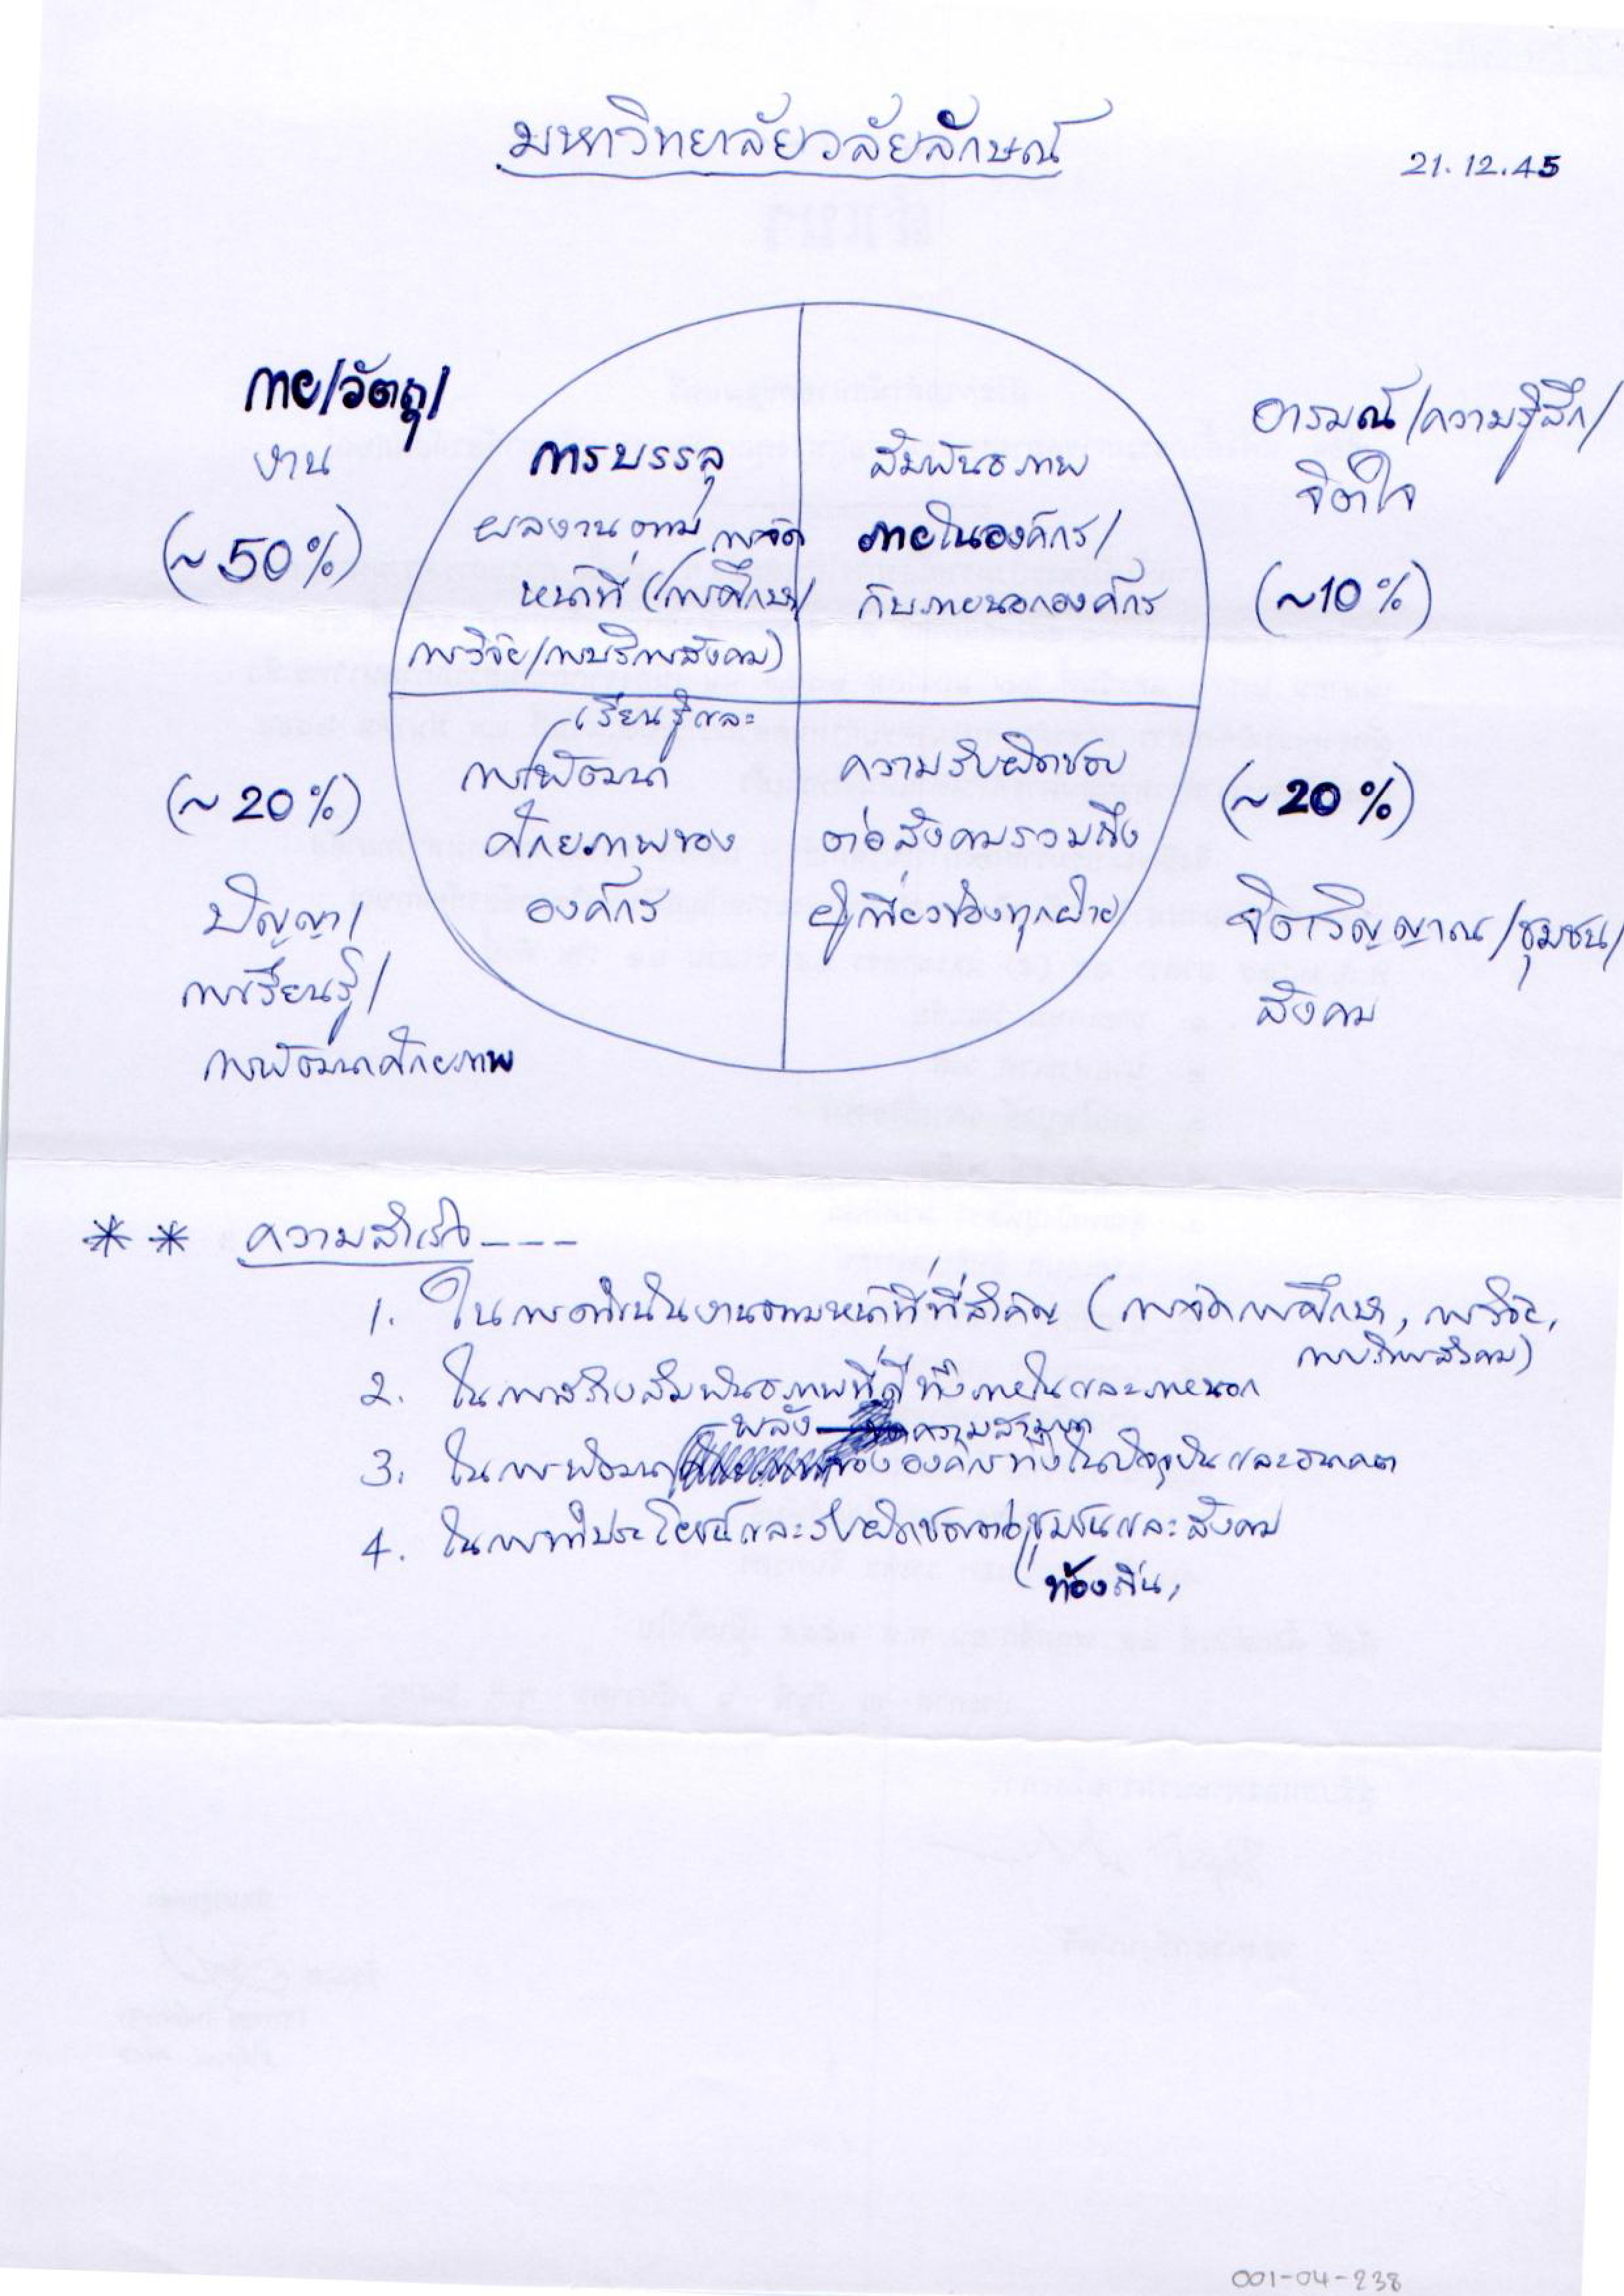 มหาวิทยาลัยวลัยลักษณ์
21.12.45
กาย/วัตถุ/
งาน
(~50%)
การบรรลุ
ผลงานตาม
หน้าที่ (การจัดการศึกษา/
การวิจัย/การบริการสังคม)
สัมพันธภาพ
ภายในองค์กร/
กับภายนอกองค์กร
อารมณ์/ความรู้สึก/
จิตใจ
(~10%)
(~20%)
ปัญญา/
การเรียนรู้/
การพัฒนาศักยภาพ
การเรียนรู้และ
พัฒนา
ศักยภาพของ
องค์กร
ความรับผิดชอบ
ต่อสังคมรวมถึง
ผู้เกี่ยวข้องทุกฝ่าย
(~20%)
จิตวิญญาณ/ชุมชน/
สังคม
** ความสำเร็จ ---
1. ในการดำเนินงานตามหน้าที่ที่สำคัญ (การจัดการศึกษา, การวิจัย,
การบริการสังคม)
2. ในการสร้างสัมพันธภาพที่ดีทั้งภายในและภายนอก
3. ในการพัฒนาพลังความสามารถขององค์กรทั้งในปัจจุบันและอนาคต
4. ในการทำประโยชน์และรับผิดชอบต่อท้องถิ่น, ชุมชนและสังคม
001-04-238